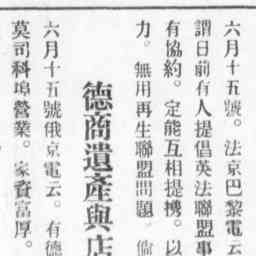 六月十五號。法京巴黎電云
謂日前有人提倡英法聯盟事
有協約。定能互相提携。以
力。無用再生聯盟問題。
德商遺產與店
六月十五號俄京電云。有德
莫司科埠營業。家資富厚。